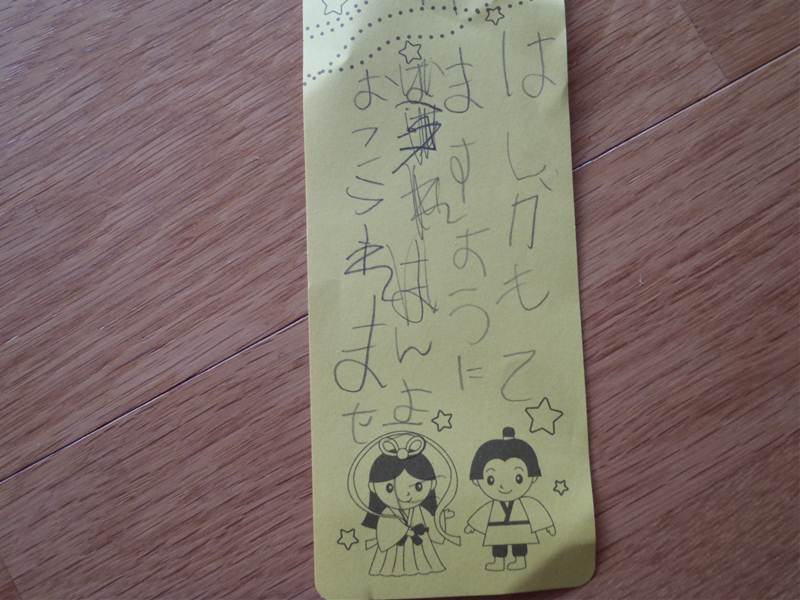 はしガもて
ますように
んよ
おこられませ